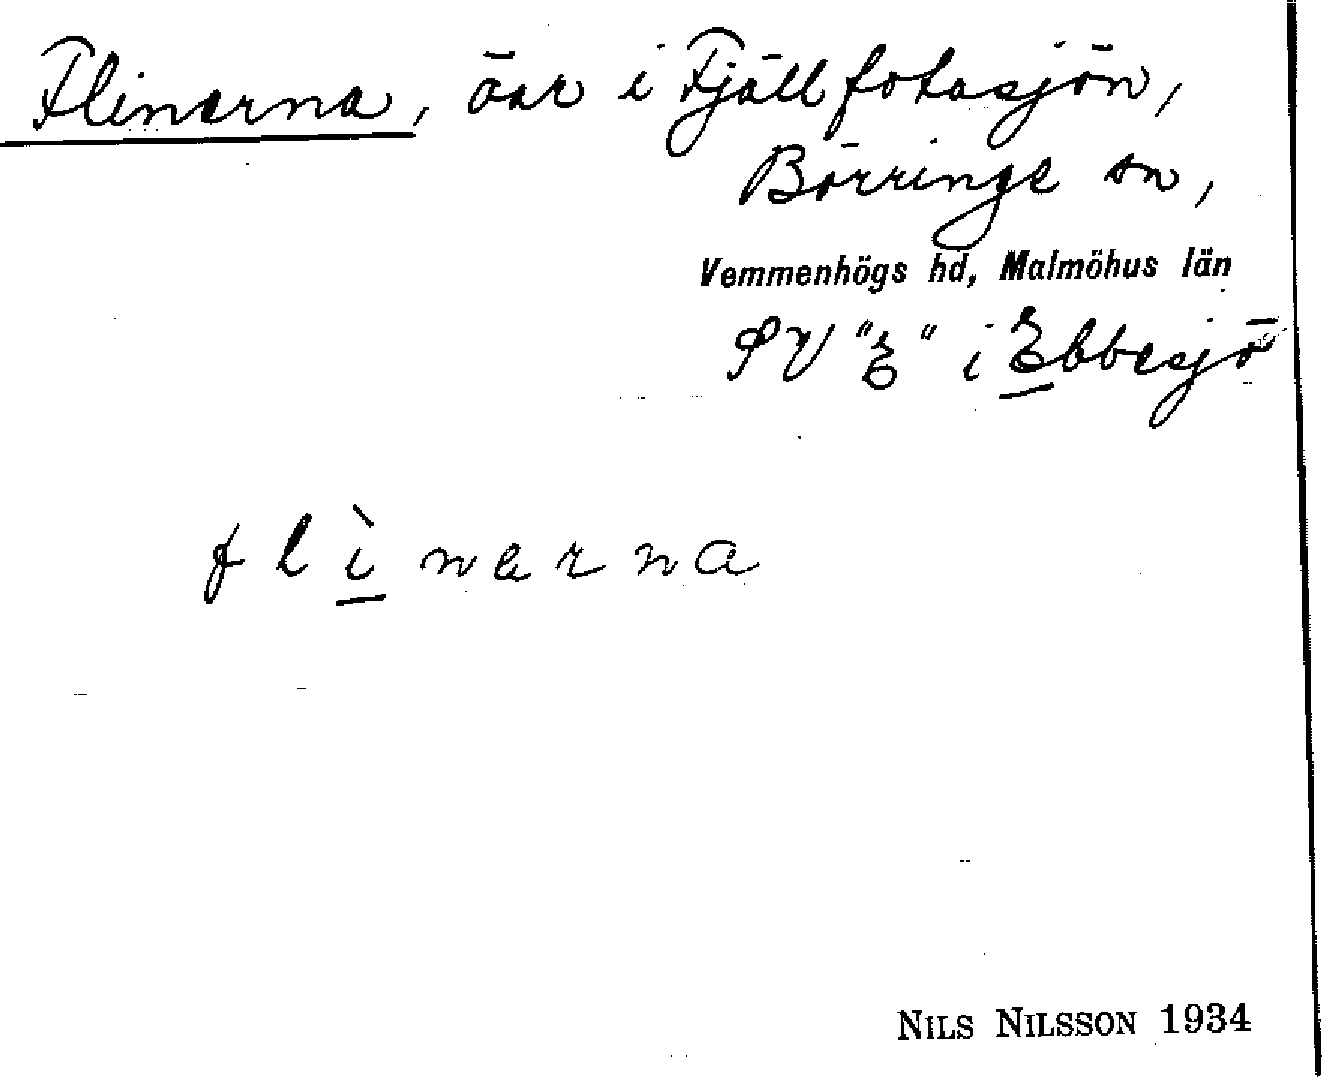 Flinerna, öar i Fjällfotasjön,
Börringe sn,
Vemmenhögs hd, Malmöhus län
SV "E" i Ebbesjö
flìnerna
NILS NILSSON 1934